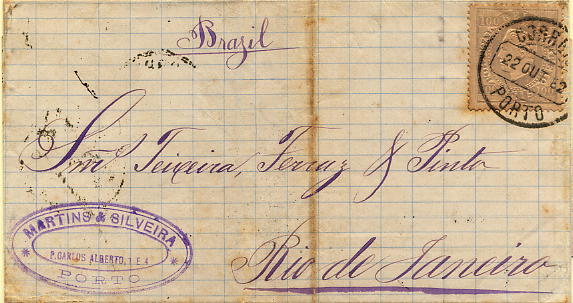 Brazil
100
CORREIO
22 OUT 82
PORTO
Snrs Teixeira, Ferraz & Pinto
* MARTINS & SILVEIRA *
P. CARLOS ALBERTO, 1 E 4
PORTO
Rio de Janeiro